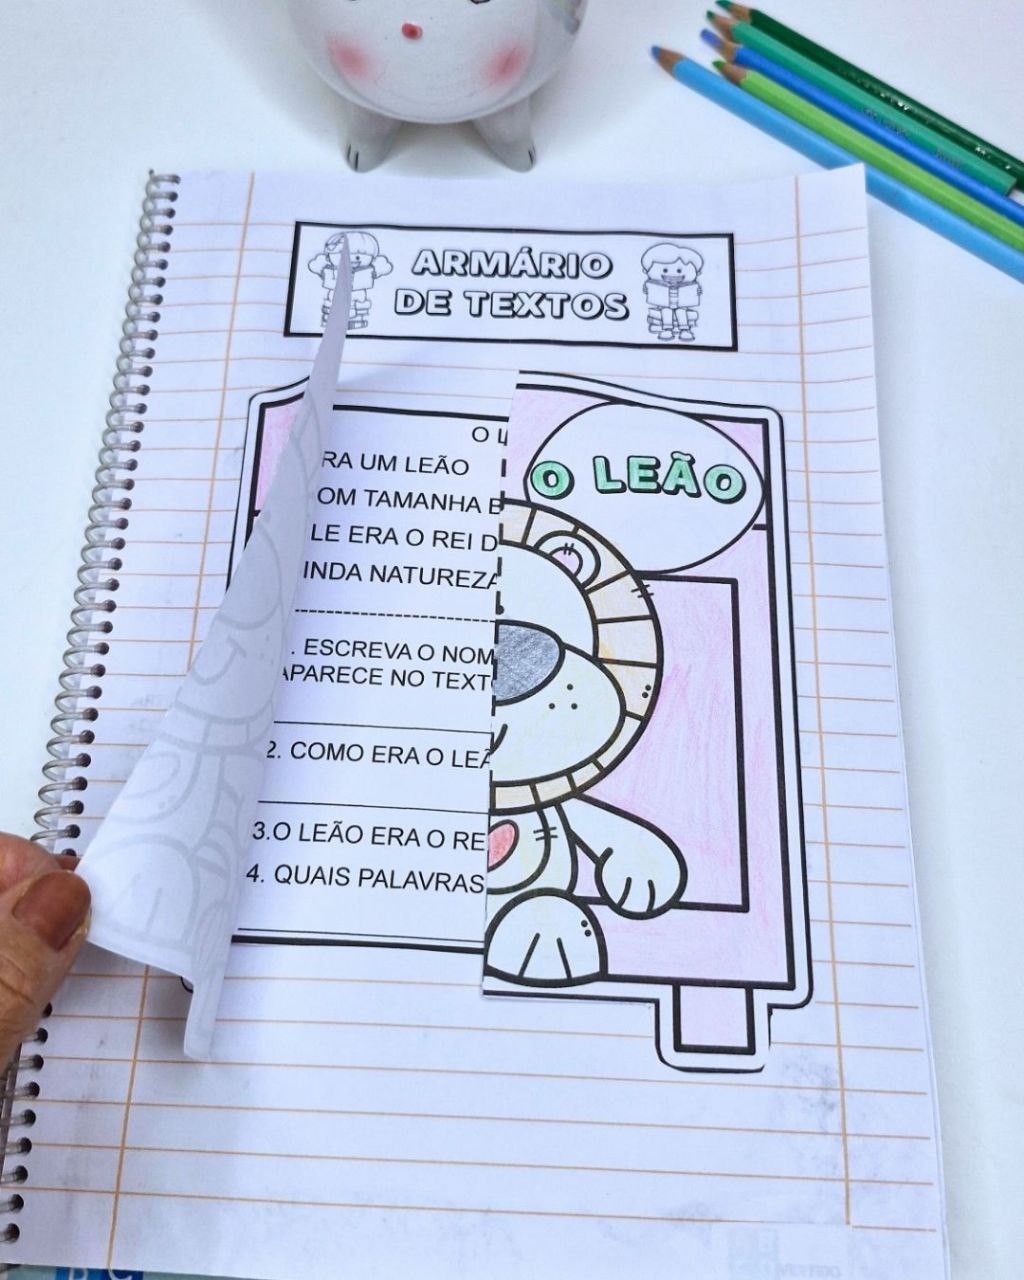 ARMÁRIO
DE TEXTOS
O LEÃO
O L
RA UM LEÃO
OM TAMANHA
LE ERA O REI D
INDA NATUREZA
. ESCREVA O NOM
APARECE NO TEXT
2. COMO ERA O LEÃ
3.O LEÃO ERA O RE
4. QUAIS PALAVRAS